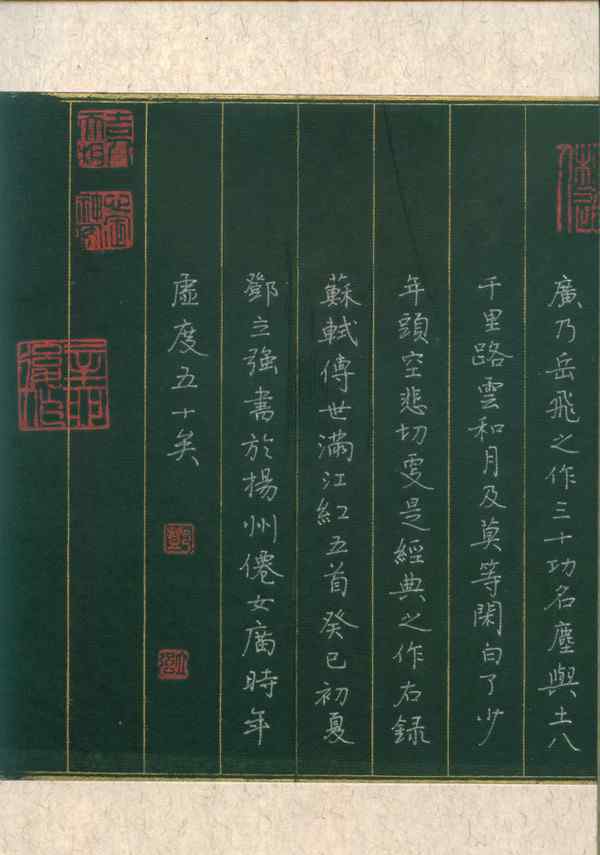 廣乃岳飛之作三十功名塵與土八
千里路雲和月及莫等閑白了少
年頭空悲切更是經典之作右録
蘇軾傳世滿江紅五首癸巳初夏
鄧立強書於揚州僊女廣時年
虛度五十矣